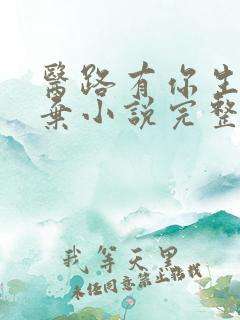 醫路有你生
棄小說完整
我等天黑
未經同意禁止轉載